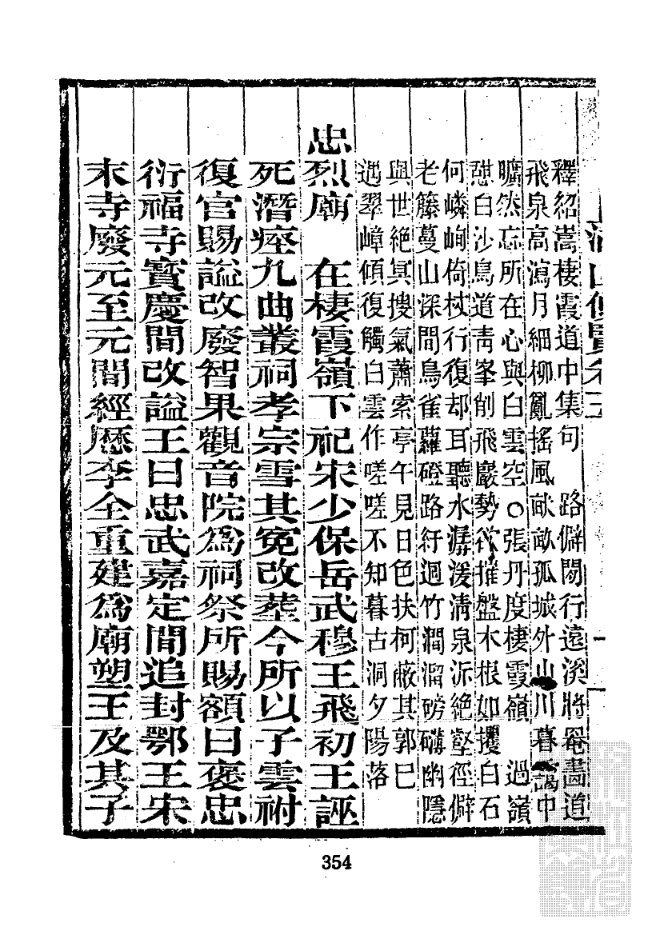 山便覽卷五
釋紹嵩棲霞道中集句　路僻閒行遠溪將罨畵道
飛泉高瀉月細柳亂搖風欹欹孤城外山川暮靄中
曠然忘所在心與白雲空○張丹度棲霞嶺　過嶺
憇白沙鳥道靑峯削飛巖勢欲摧盤木根如攫白石
何嶙峋倚杖行復却耳聽水潺湲淸泉泝絕壑徑僻
老籐蔓山深閒鳥雀蘿磴路紆迴竹澗溜磅礴幽隱
與世絕冥搜氣蕭索亭午見日色扶柯蔽其郭巳
遇翠嶂傾復觸白雲作嗟嗟不知暮古洞夕陽落
忠烈廟　在棲霞嶺下祀宋少保岳武穆王飛初王誣
死潛瘞九曲叢祠孝宗雪其冤改葬今所以子雲祔
復官賜謚改廢智果觀音院爲祠祭所賜額曰褒忠
衍福寺寶慶間改謚王曰忠武嘉定間追封鄂王宋
末寺廢元至元間經歷李全重建爲廟塑王及其子
354